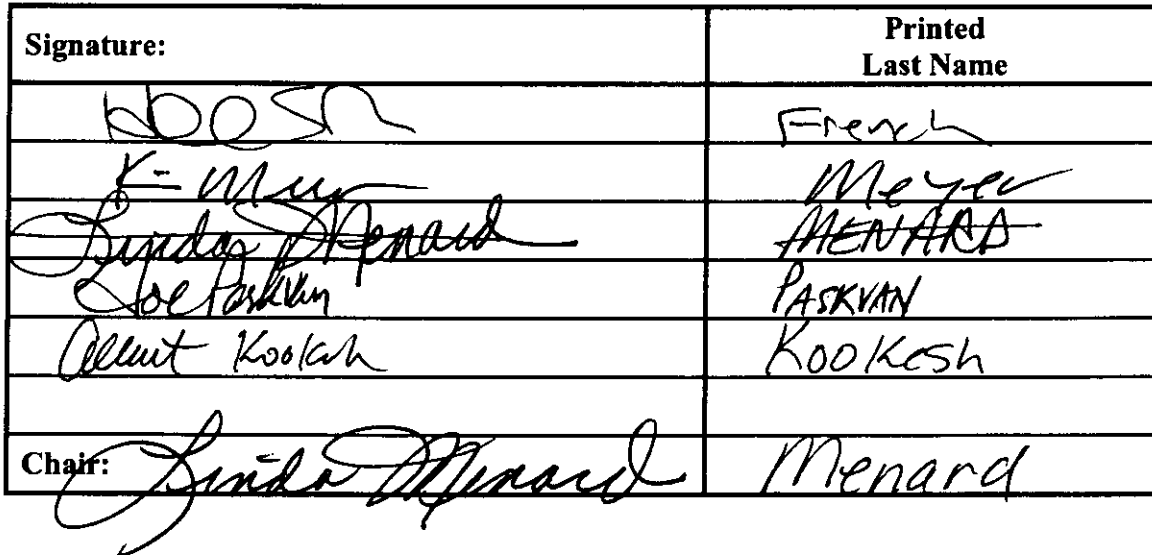 Signature: Printed
Last Name
French
K- Meyer
Linda Menard MENARD
Joe Paskvan PASKVAN
Albert Kookesh Kookesh
Chair: Linda Menard Menard